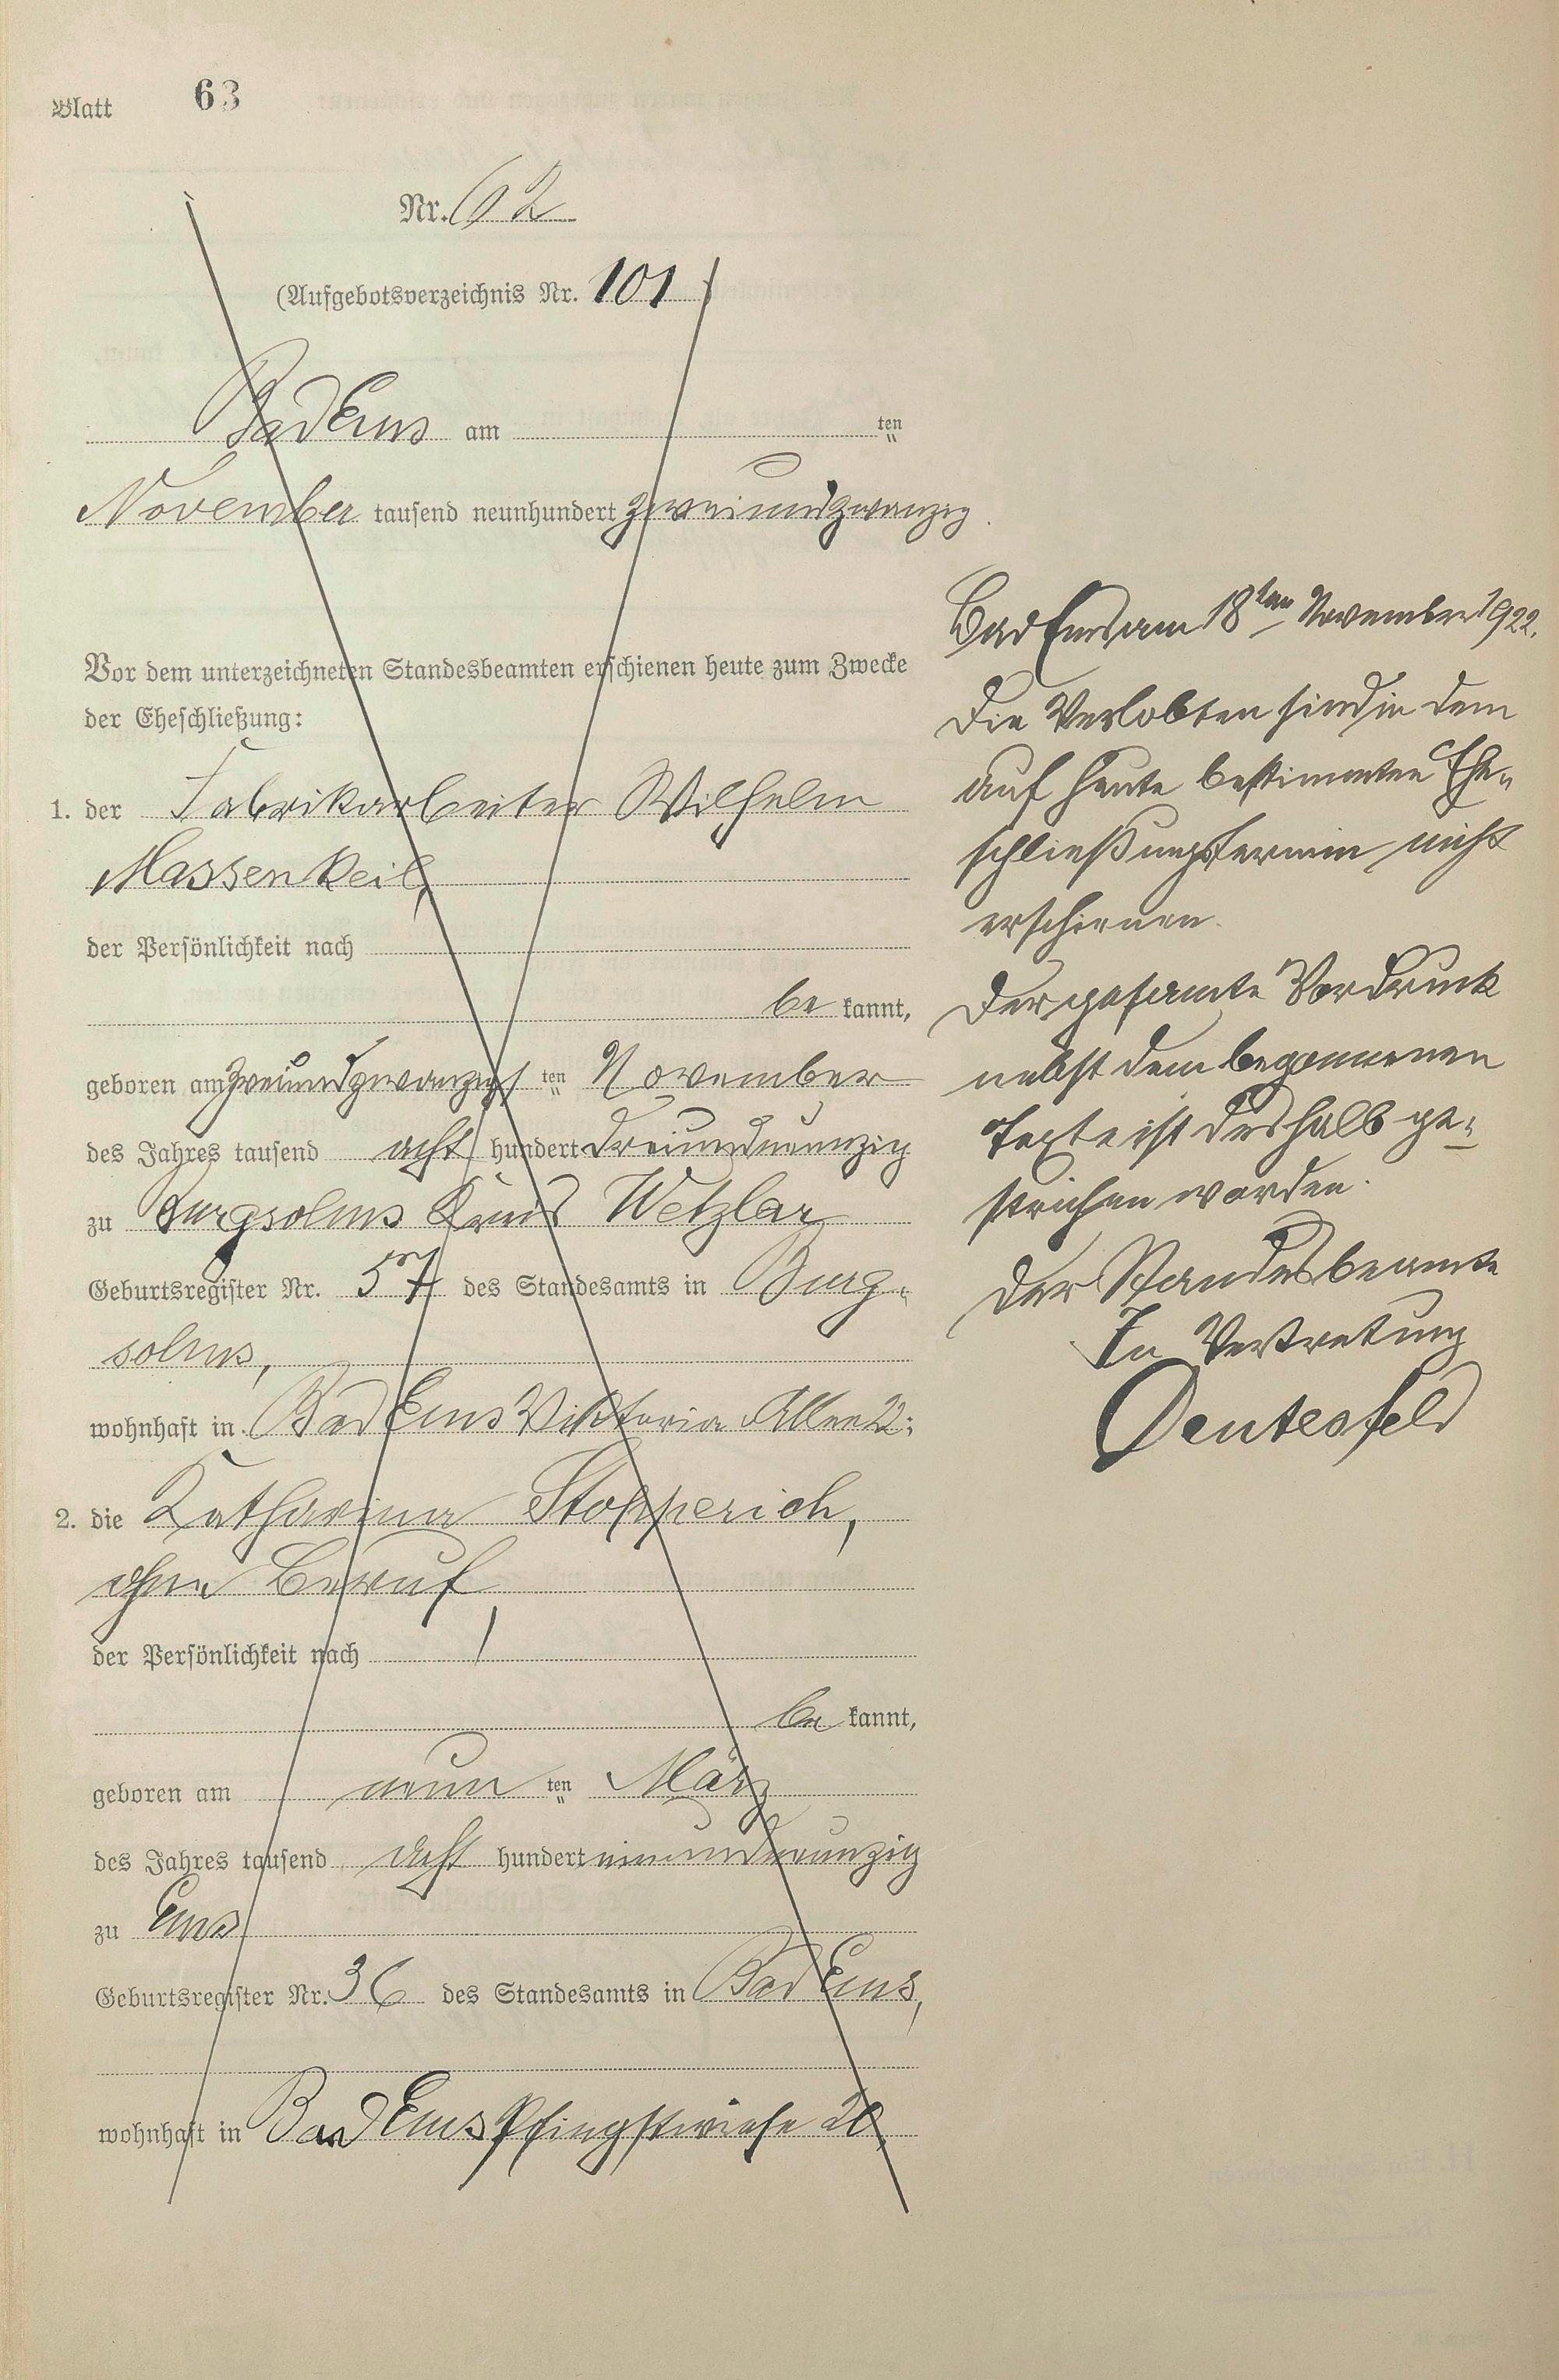 Blatt 63
Nr. 62
(Aufgebotsverzeichnis Nr. 101)
Bad Ems am ten
November tausend neunhundert zweiundzwanzig
Vor dem unterzeichneten Standesbeamten erschienen heute zum Zwecke
der Eheschließung:
1. der Fabrikarbeiter Wilhelm
Massenkeil,
der Persönlichkeit nach
be kannt,
geboren am zweiundzwanzigs ten November
des Jahres tausend acht hundert dreiundneunzig
zu Burgsolms Kreis Wetzlar
Geburtsregister Nr. 57 des Standesamts in Burg-
solms,
wohnhaft in Bad Ems Viktoria Allee 22;
2. die Katharina Stopperich,
ohne Beruf,
der Persönlichkeit nach
be kannt,
geboren am neun ten März
des Jahres tausend acht hundert einundneunzig
zu Ems
Geburtsregister Nr. 36 des Standesamts in Bad Ems,
wohnhaft in Bad Ems Pfingstwiese 20,
Bad Ems am 18ten November 1922.
Die Verlobten sind in dem
auf heute bestimmten Ehe-
schließungstermin nicht
erschienen.
Der gesamte Vordruck
nebst dem begonnenen
Texte ist deshalb ge-
strichen worden.
Der Standesbeamte
In Vertretung
Deutesfeld